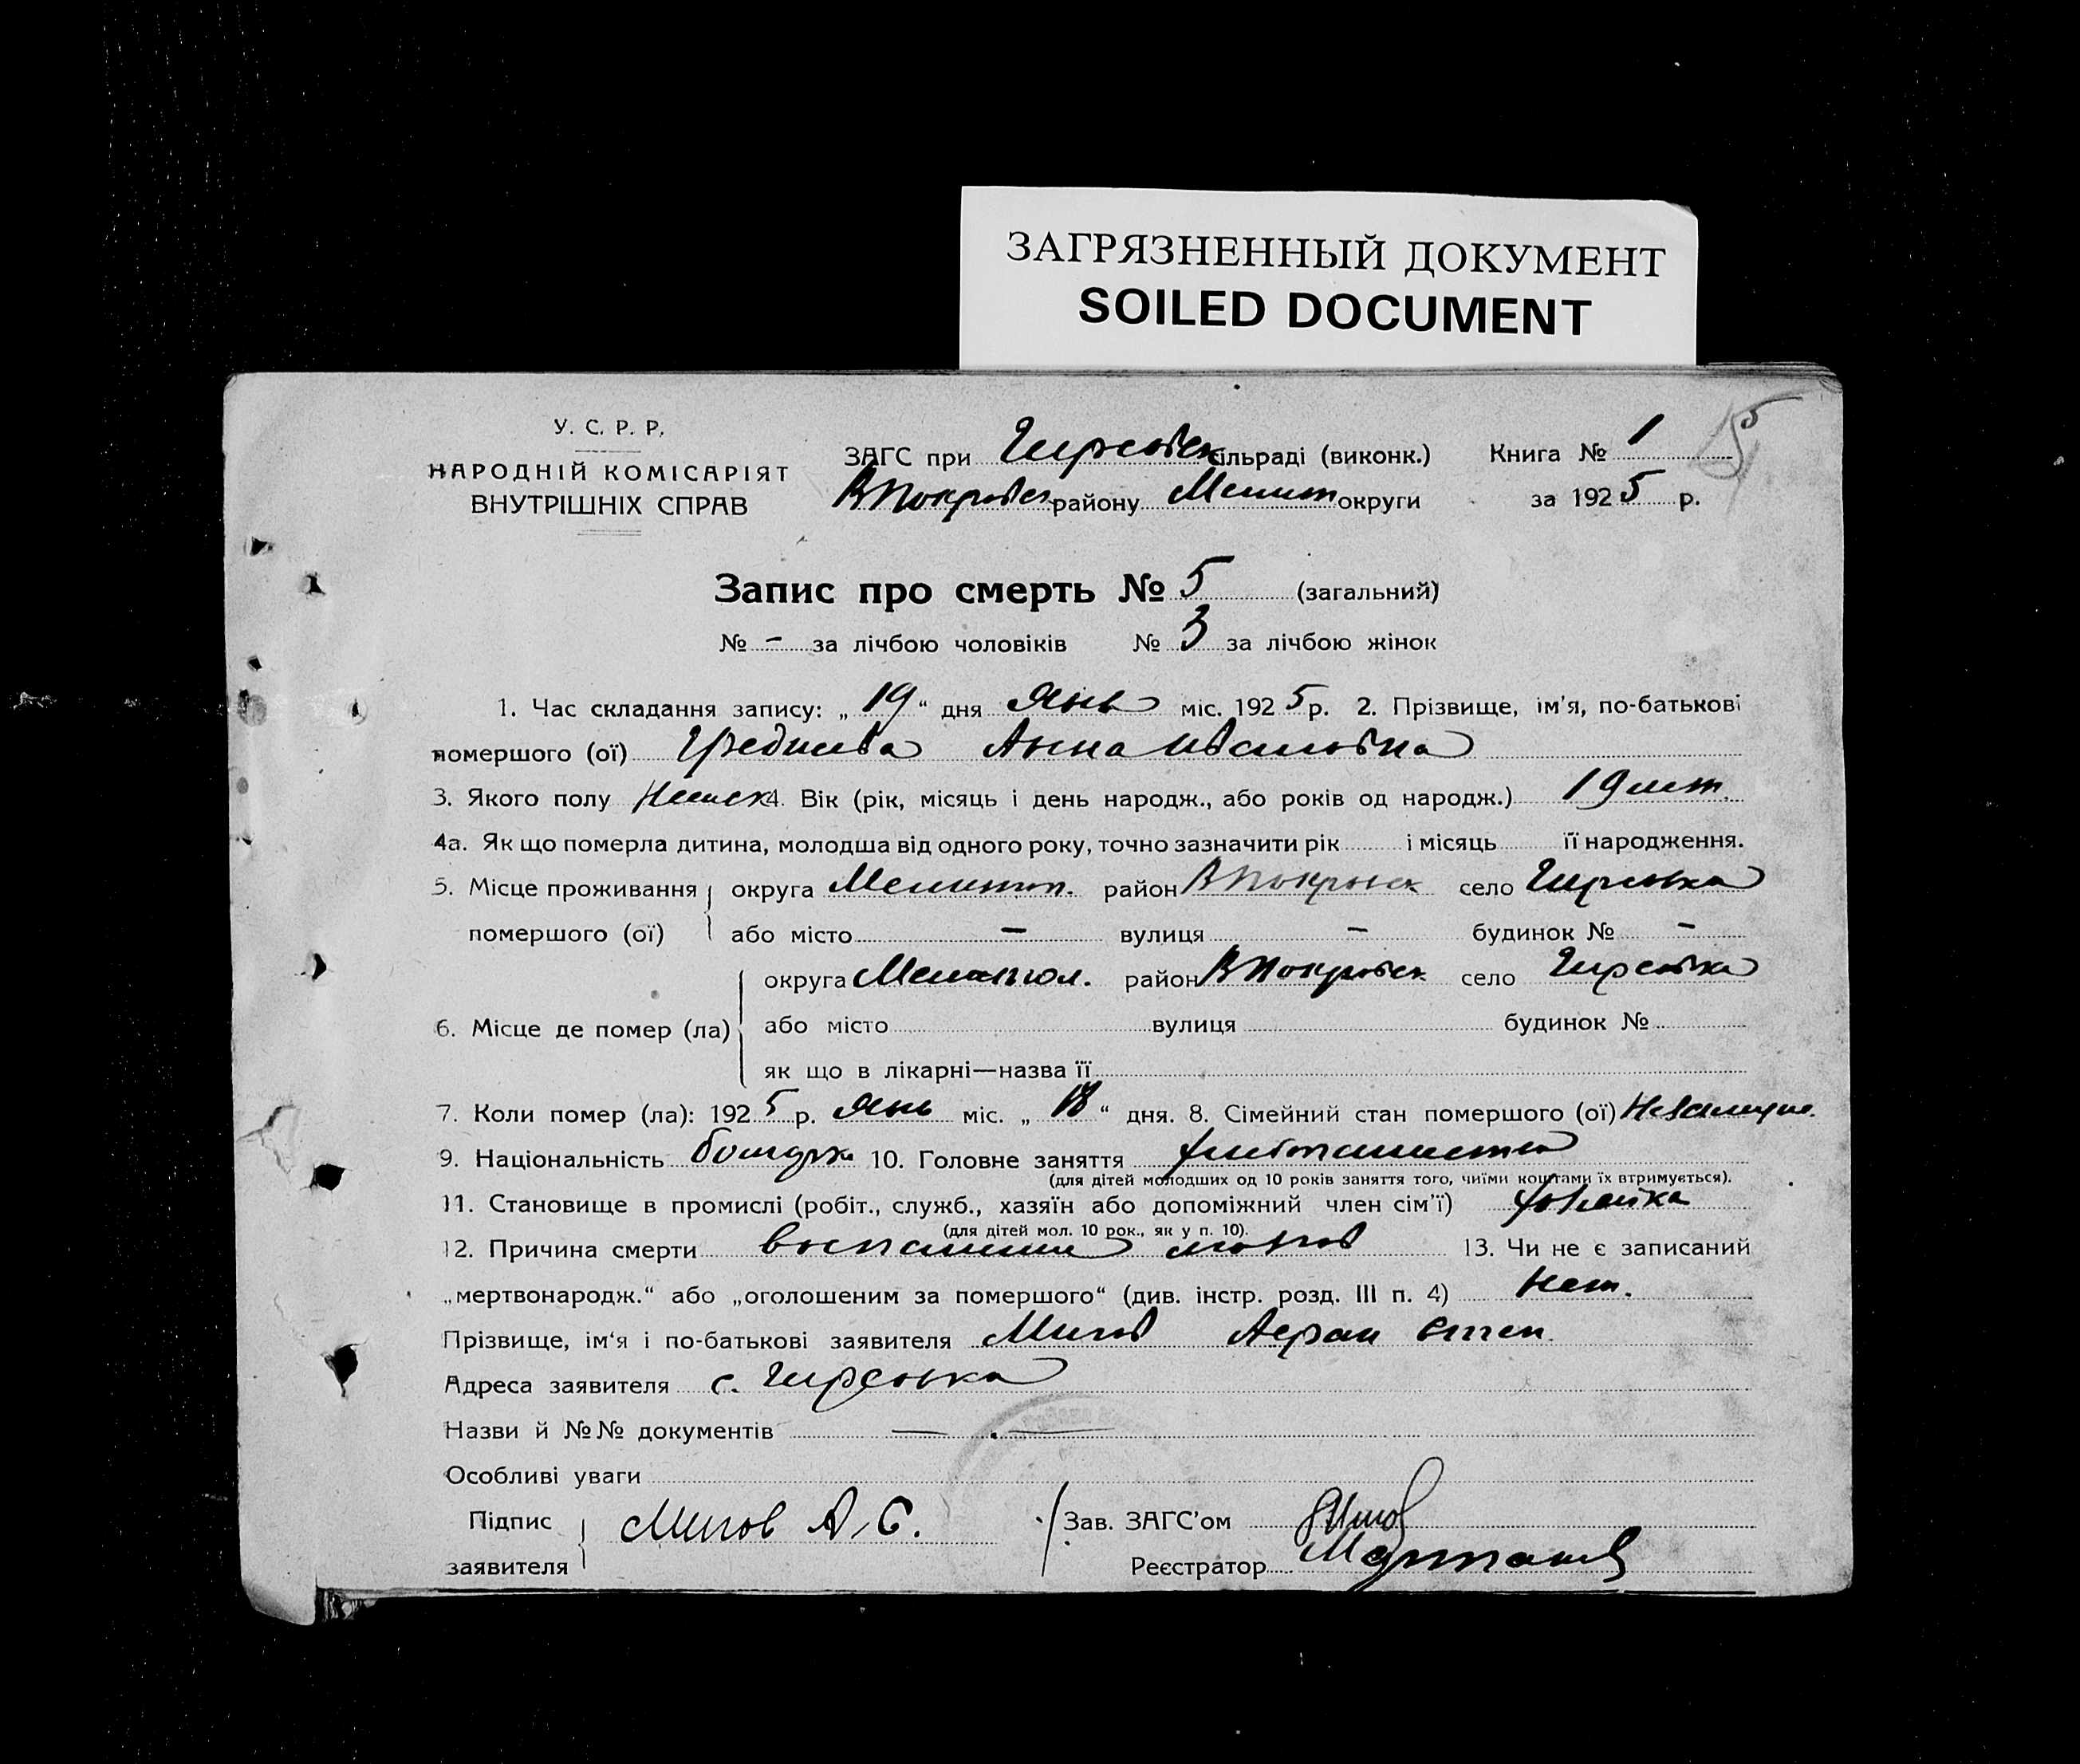 ЗАГРЯЗНЕННЫЙ ДОКУМЕНТ
SOILED DOCUMENT
У. С. Р. Р.
НАРОДНІЙ КОМІСАРІЯТ
ВНУТРІШНІХ СПРАВ
ЗАГС при Гирсовск сільраді (виконк.) Книга № 1
В Покровск району Мелит округи за 1925 р.
Запис про смерть № 5 (загальний)
№ - за лічбою чоловіків № 3 за лічбою жінок
1. Час складання запису: „19“ дня Янв міс. 1925 р. 2. Прізвище, ім'я, по-батькові
помершого (ої) Анна Ивановна
3. Якого полу Женск 4. Вік (рік, місяць і день народж., або років од народж.) 19 лет
4а. Як що померла дитина, молодша від одного року, точно зазначити рік і місяць її народження.
5. Місце проживання округа Мелитоп. район В Покровск село Гирсовка
помершого (ої) або місто - вулиця - будинок № -
округа Мелитоп. район В Покровск село Гирсовка
6. Місце де помер (ла) або місто вулиця будинок №
як що в лікарні—назва її
7. Коли помер (ла): 1925 р. Янв міс. „18“ дня. 8. Сімейний стан помершого (ої) Незамуж.
9. Національність болгарк 10. Головне заняття
(для дітей молодших од 10 років заняття того, чиїми коштами їх втримується).
11. Становище в промислі (робіт., служб., хазяїн або допоміжний член сім'ї) хозяйка
(для дітей мол. 10 рок., як у п. 10).
12. Причина смерти воспаление мозгов 13. Чи не є записаний
„мертвонародж.“ або „оголошеним за помершого“ (див. інстр. розд. III п. 4) нет.
Прізвище, ім'я і по-батькові заявителя Милов Степ.
Адреса заявителя с. Гирсовка
Назви й №№ документів — —
Особливі уваги
Підпис Милов А. С. Зав. ЗАГС'ом
заявителя Реєстратор